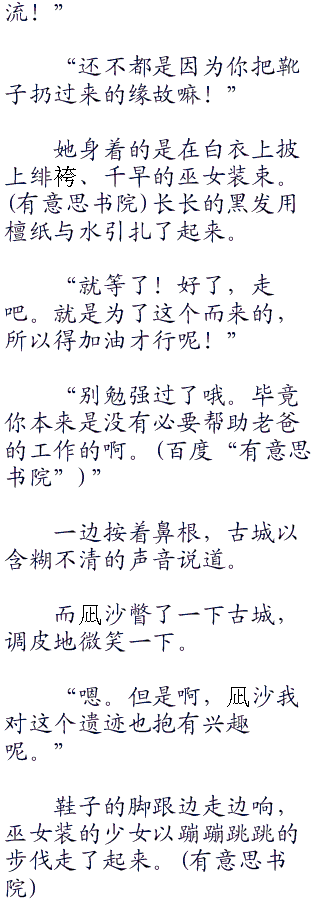 流！”
“还不都是因为你把靴
子扔过来的缘故嘛！”
她身着的是在白衣上披
上绯袴、千早的巫女装束。
(有意思书院)长长的黑发用
檀纸与水引扎了起来。
“就等了！好了，走
吧。就是为了这个而来的，
所以得加油才行呢！”
“别勉强过了哦。毕竟
你本来是没有必要帮助老爸
的工作的啊。(百度“有意思
书院”)”
一边按着鼻根，古城以
含糊不清的声音说道。
而凪沙瞥了一下古城，
调皮地微笑一下。
“嗯。但是啊，凪沙我
对这个遗迹也抱有兴趣
呢。”
鞋子的脚跟边走边响，
巫女装的少女以蹦蹦跳跳的
步伐走了起来。(有意思书
院)